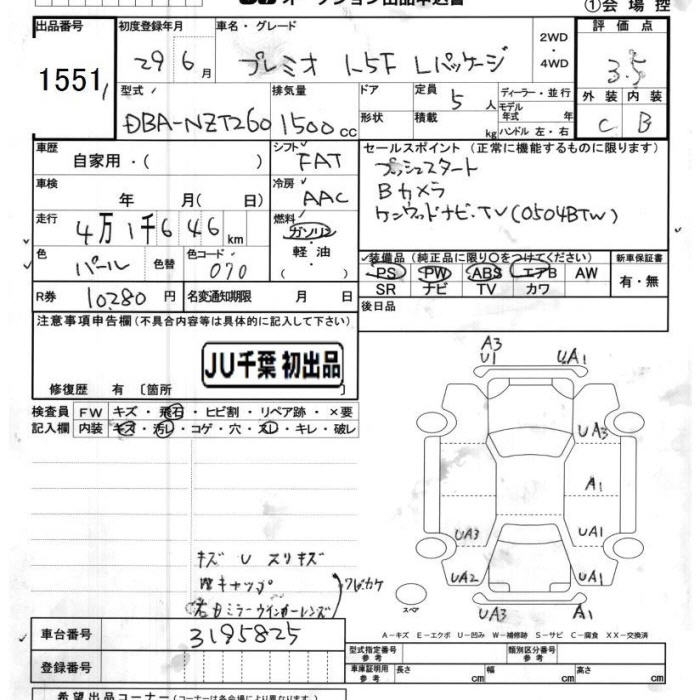 ①会場控
出品番号 初度登録年月 車名・グレード 評価点
1551 29 6月 プレミオ 1.5F Lパッケージ 2WD・4WD 3.5
型式 排気量 ドア 定員 5人 ディーラー・並行 外装 内装
DBA-NZT260 1500cc 形状 積載 kg モデル年式 年 ハンドル 左・右 C B
車歴 自家用・( ) シフト FAT セールスポイント(正常に機能するものに限ります)
プッシュスタート
車検 年 月( 日) 冷房 AAC Bカメラ
走行 4万1千646km 燃料 ガソリン・軽油・ ケンウッドナビ.TV(0504BTW)
色 パール 色替 色コード 070 装備品(純正品に限り○をつけてください) 新車保証書
PS PW ABS エアB AW 有・無
SR ナビ TV カワ
R券 10,280円 名変通知期限 月 日 後日品
注意事項申告欄(不具合内容等は具体的に記入して下さい)
JU千葉 初出品
修復歴 有〔箇所 〕
検査員 FW キズ・飛石・ヒビ割・リペア跡・×要
記入欄 内装 キズ・汚レ・コゲ・穴・スレ・キレ・破レ
A3
U1 UA1
UA3
A1
UA3 UA1
UA2 UA1
UA3 A1
スペア
キズ U スリキズ
キャップ
右ドミラーウインカーレンズ
A-キズ E-エクボ U-凹み W-補修跡 S-サビ C-腐食 XX-交換済
車台番号 3195825
型式指定番号 参考 類別区分番号 参考
登録番号 車庫証明用 参考 長さ cm 幅 cm 高さ cm
希望出品コーナー(コーナーは各会場により異なります)